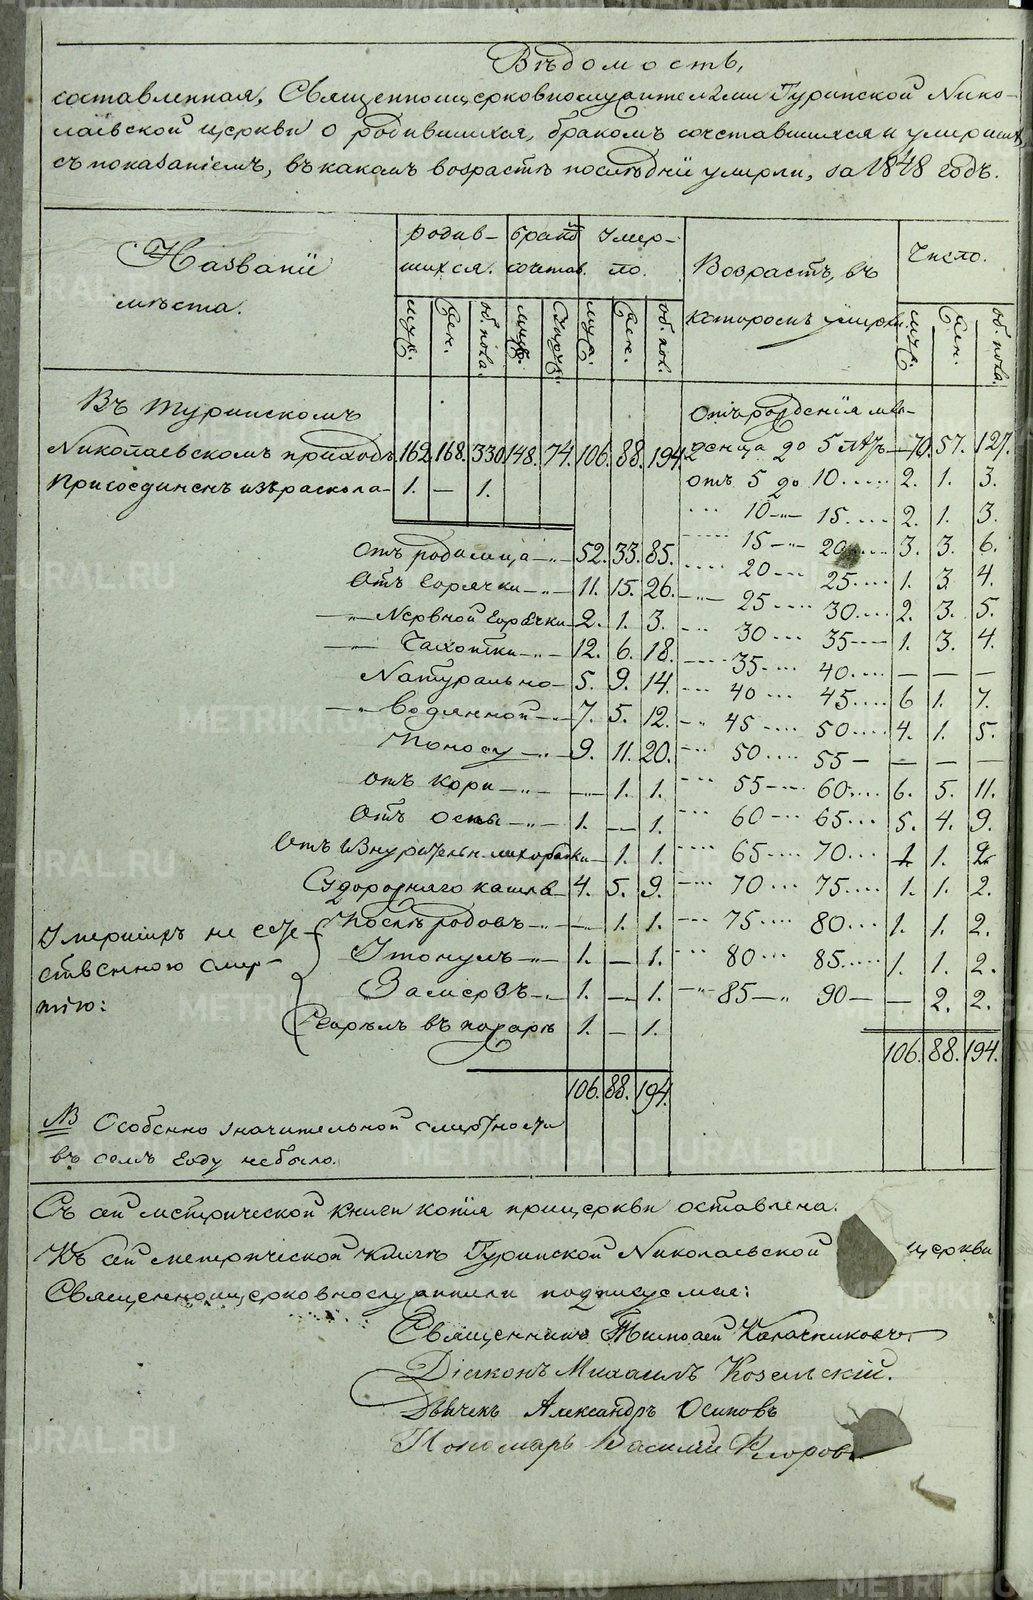 Вѣдомость,
составленная, Священноцерковнослужителями Туринской Нико-
лаевской церкви о родившихся, бракомъ сочетавшихся и умершихъ,
съ показанiемъ, въ какомъ возрастѣ послѣднiи умерли, за 1848 годъ.
Названiи мѣста.
родив-шихся. браковъ сочетав. Умер-ло. Возрастъ, въ которомъ умерли. Число.
муж. жен. об. пола. муж. жен. об. пол. муж. жен. об. пола.
Въ Туринскомъ
Николаевскомъ приходѣ 162. 168. 330. 148. 74. 106. 88. 194.
Присоединенъ изъ раскола 1. — 1.
Отъ рожденiя мла-
денца до 5 лѣтъ 70. 57. 127.
отъ 5 до 10 2. 1. 3.
10 — 15 2. 1. 3.
15 — 20 3. 3. 6.
20 — 25 1. 3. 4.
25 — 30 2. 3. 5.
30 — 35 1. 3. 4.
35 — 40 — — —
40 — 45 6. 1. 7.
45 — 50 4. 1. 5.
50 — 55 — — —
55 — 60 6. 5. 11.
60 — 65 5. 4. 9.
65 — 70 1. 1. 2.
70 — 75 1. 1. 2.
75 — 80 1. 1. 2.
80 — 85 1. 1. 2.
85 — 90 — 2. 2.
106. 88. 194.
Отъ родимца 52. 33. 85.
Отъ Горячки 11. 15. 26.
Нервной Горячки 2. 1. 3.
Чахотки 12. 6. 18.
Натурально 5. 9. 14.
Водянной 7. 5. 12.
Поносу 9. 11. 20.
отъ Кори — 1. 1.
Отъ оспы 1. — 1.
Отъ Изнурительн. лихорадки — 1. 1.
Судорожнаго кашля 4. 5. 9.
Умершихъ не есте-
ственною смер-
тiю:
Послѣ родовъ — 1. 1.
Утонулъ 1. — 1.
Замерзъ 1. — 1.
Сгорѣлъ въ пожарѣ 1. — 1.
106. 88. 194.
NB Особенно значительной смертности
въ семъ Году небыло.
Съ сей метрической книги копiя прицеркви оставлена.
Къ сей метрической книгѣ Туринской Николаевской церкви
Священноцерковнослужители подписуемся:
Священникъ Тимофей Калачниковъ
Дiаконъ Михаилъ Козельскiй.
Дьячекъ Александръ Осиповъ
Пономарь Василiй
METRIKI.GASO-URAL.RU